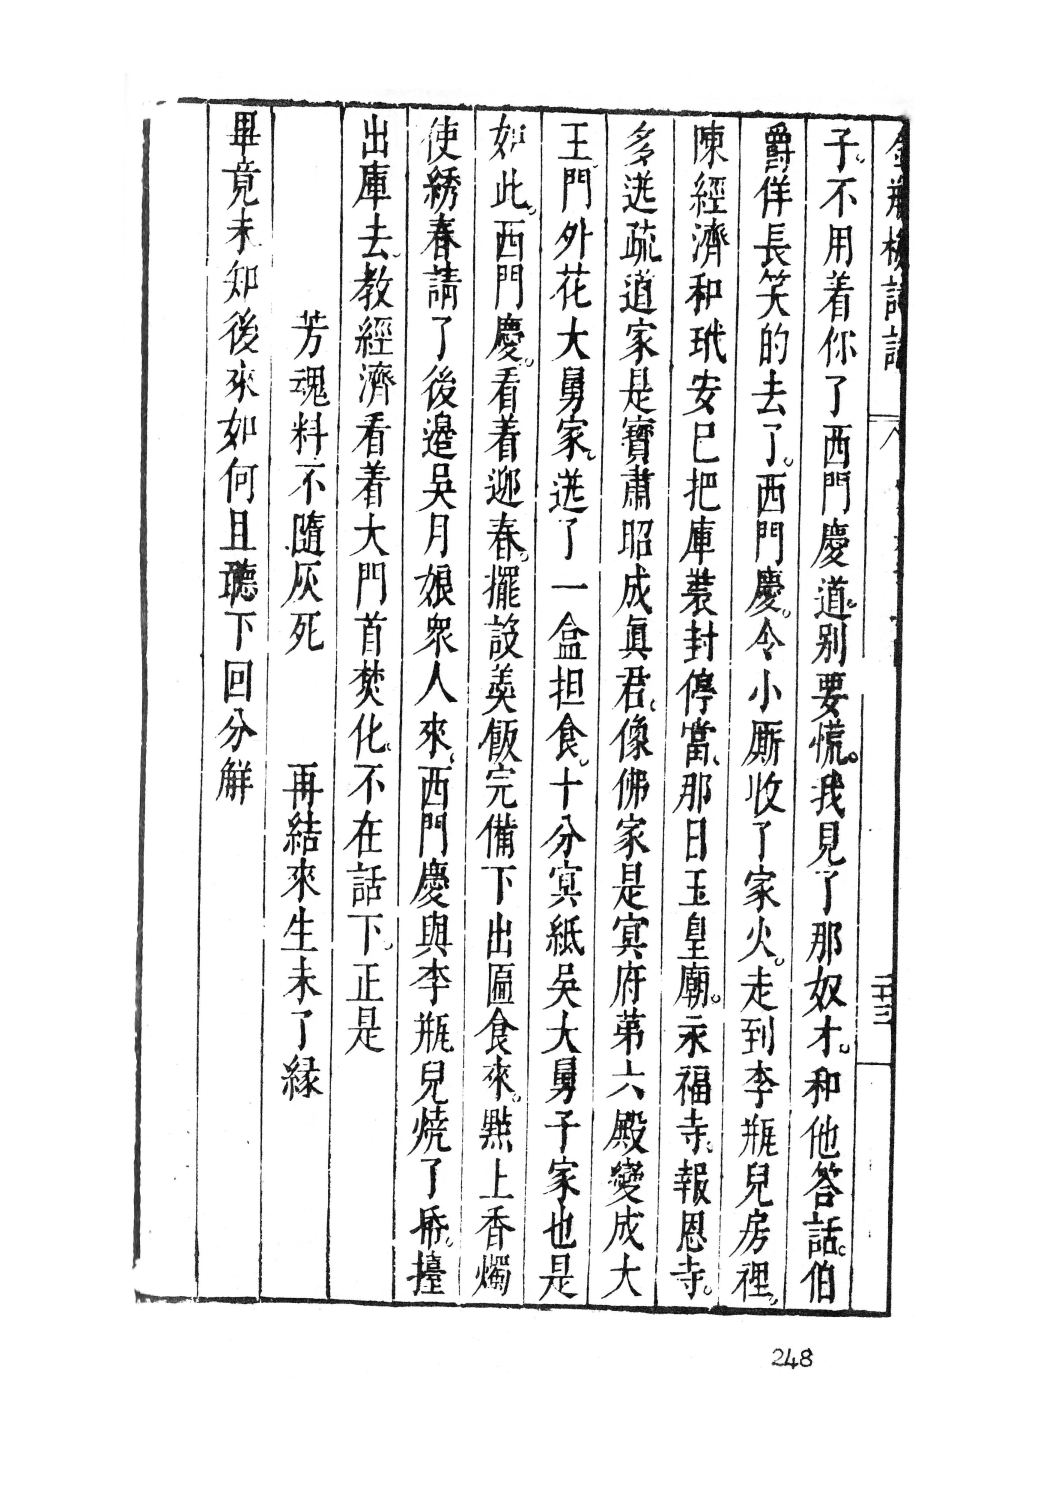 金瓶梅詞話
子。不用着你了西門慶道。别要慌。我見了那奴才。和他答話。伯
爵佯長笑的去了。西門慶。令小厮收了家火。走到李瓶兒房裡。
陳經濟和玳安已把庫裝封停當、那日玉皇廟。永福寺。報恩寺。
多送疏道家是寶肅昭成眞君。像佛家是冥府第六殿變成大
王、門外花大舅家。送了一盒担食。十分冥紙吳大舅子家也是
如此。西門慶。看着迎春。擺設羮飯完備下出匾食來。點上香燭
使綉春請了後邊吳月娘衆人來。西門慶與李瓶兒燒了帋。擡
出庫去。教經濟看着大門首焚化。不在話下。正是
芳魂料不隨灰死 再結來生未了緣
畢竟未知後來如何且聽下回分解
248